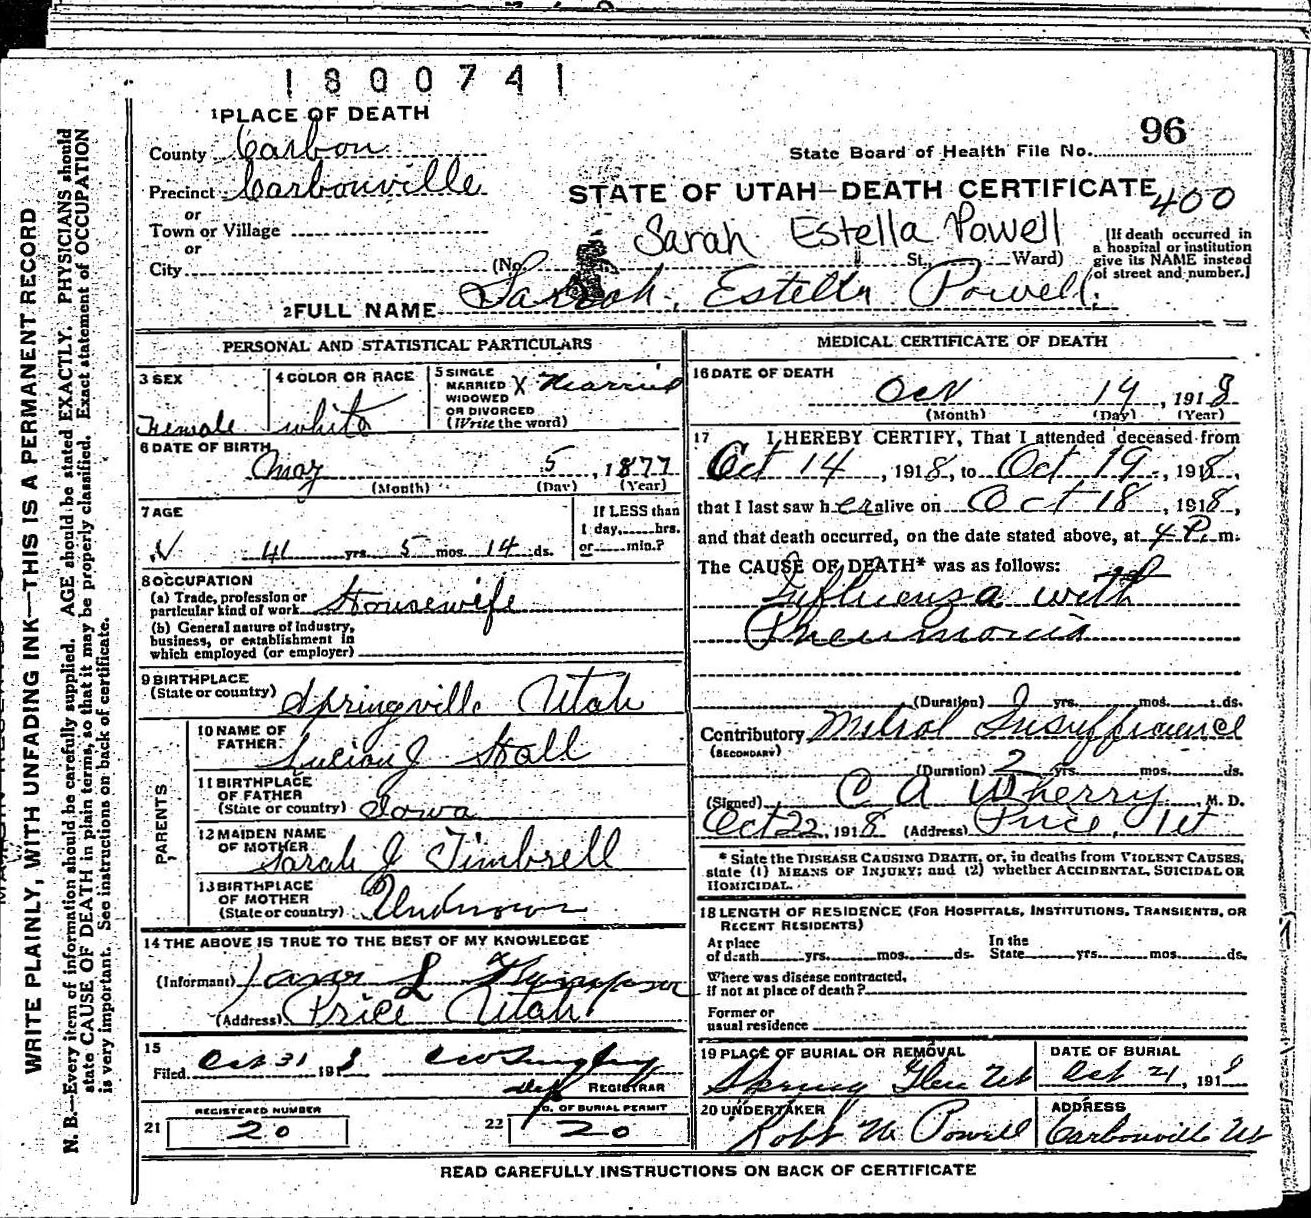 1800741
1 PLACE OF DEATH
County Carbon
Precinct Carbonville
or
Town or Village
or
City
96
State Board of Health File No.
STATE OF UTAH—DEATH CERTIFICATE
400
Sarah Estella Powell
(No. St., Ward)
[If death occurred in
a hospital or institution
give its NAME instead
of street and number.]
2 FULL NAME Sarah Estella Powell
PERSONAL AND STATISTICAL PARTICULARS
3 SEX
Female
4 COLOR OR RACE
white
5 SINGLE
MARRIED X Married
WIDOWED
OR DIVORCED
(Write the word)
6 DATE OF BIRTH
May 5, 1877
(Month) (Day) (Year)
7 AGE
41 yrs. 5 mos. 14 ds.
If LESS than
1 day,......hrs.
or......min.?
8 OCCUPATION
(a) Trade, profession or
particular kind of work Housewife
(b) General nature of industry,
business, or establishment in
which employed (or employer)
9 BIRTHPLACE
(State or country) Springville Utah
PARENTS
10 NAME OF
FATHER Lucian J Hall
11 BIRTHPLACE
OF FATHER
(State or country) Iowa
12 MAIDEN NAME
OF MOTHER Sarah J Timbrell
13 BIRTHPLACE
OF MOTHER
(State or country) Unknown
14 THE ABOVE IS TRUE TO THE BEST OF MY KNOWLEDGE
(Informant) L
(Address) Price Utah
15
Filed Oct 31 1918
REGISTRAR
REGISTERED NUMBER
21 20
NO. OF BURIAL PERMIT
22 20
MEDICAL CERTIFICATE OF DEATH
16 DATE OF DEATH
Oct 19, 1918
(Month) (Day) (Year)
17 I HEREBY CERTIFY, That I attended deceased from
Oct 14, 1918, to Oct 19, 1918,
that I last saw her alive on Oct 18, 1918,
and that death occurred, on the date stated above, at 4 P. m.
The CAUSE OF DEATH* was as follows:
Influenza with
Pneumonia
(Duration) yrs. mos. ds.
Contributory Mitral Insufficience
(SECONDARY)
(Duration) 2 yrs. mos. ds.
(Signed) C A Wherry, M. D.
Oct 22, 1918 (Address) Price, Ut
* State the DISEASE CAUSING DEATH, or, in deaths from VIOLENT CAUSES,
state (1) MEANS OF INJURY; and (2) whether ACCIDENTAL, SUICIDAL OR
HOMICIDAL.
18 LENGTH OF RESIDENCE (FOR HOSPITALS, INSTITUTIONS, TRANSIENTS, OR
RECENT RESIDENTS)
At place
of death......yrs......mos......ds.
In the
State......yrs......mos......ds.
Where was disease contracted,
if not at place of death?
Former or
usual residence
19 PLACE OF BURIAL OR REMOVAL
Spring Glen Ut
DATE OF BURIAL
Oct 21, 191
20 UNDERTAKER
Robt Powell
ADDRESS
Carbonville Ut
READ CAREFULLY INSTRUCTIONS ON BACK OF CERTIFICATE
WRITE PLAINLY, WITH UNFADING INK—THIS IS A PERMANENT RECORD
N. B.—Every item of information should be carefully supplied. AGE should be stated EXACTLY. PHYSICIANS should
state CAUSE OF DEATH in plain terms, so that it may be properly classified. Exact statement of OCCUPATION
is very important. See instructions on back of certificate.